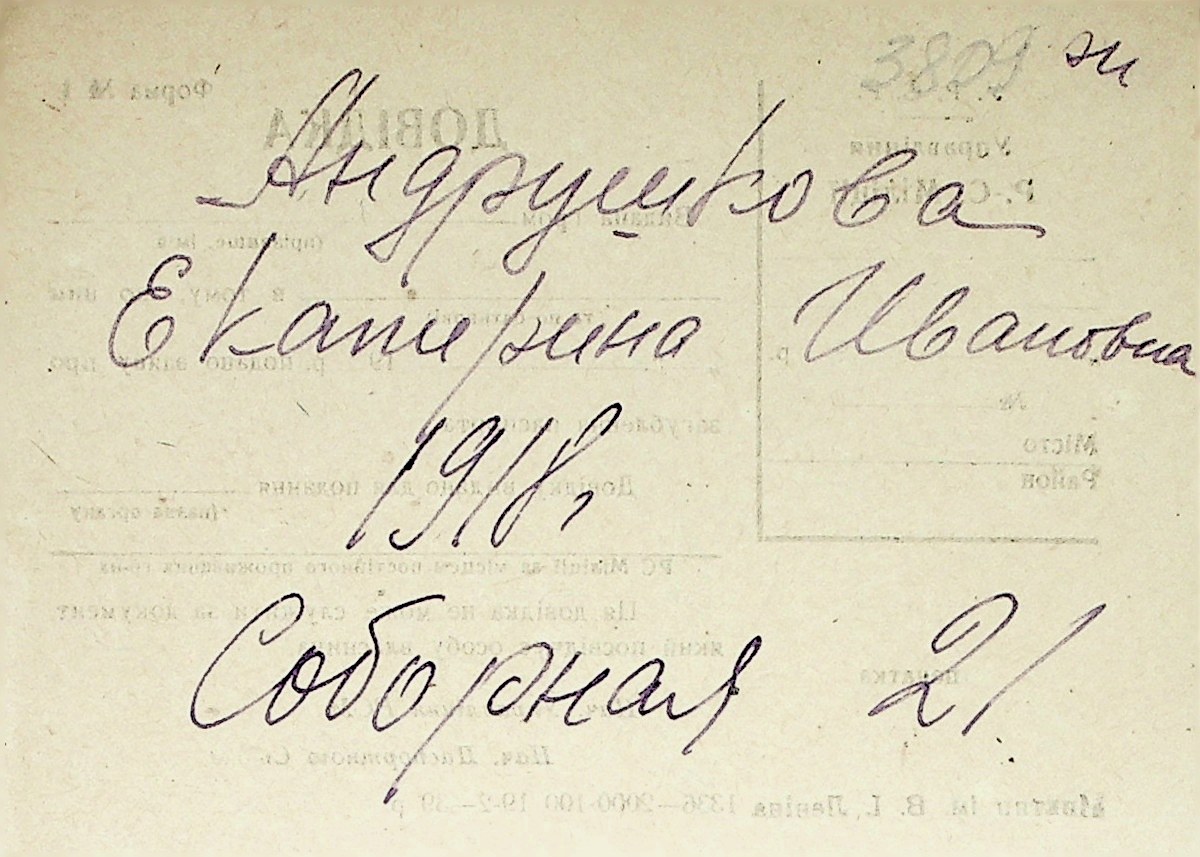 3809 жи
Андрушкова
Екатерина Ивановна
1918г
Соборная 21
Форма № 1
ДОВІДКА
Управління
Видана гром.
(прізвище, ім'я
в тому, що ним
та по батькові)
19 р. подано заяву про
р.
№
загублення паспорта
Місто
Район
Довідку видано для подання
(назва органу
РС Міліції за місцем постійного проживання гр-на
Ця довідка не може служити за документ
який посвідчує особу власника.
печатка
Нач. Паспортного Ст
ім. В. І. Леніна 1336—2000-100 19-2—39 р